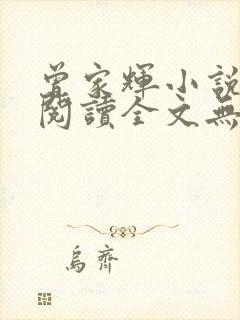 曾家輝小說
閱讀全文無
烏齊